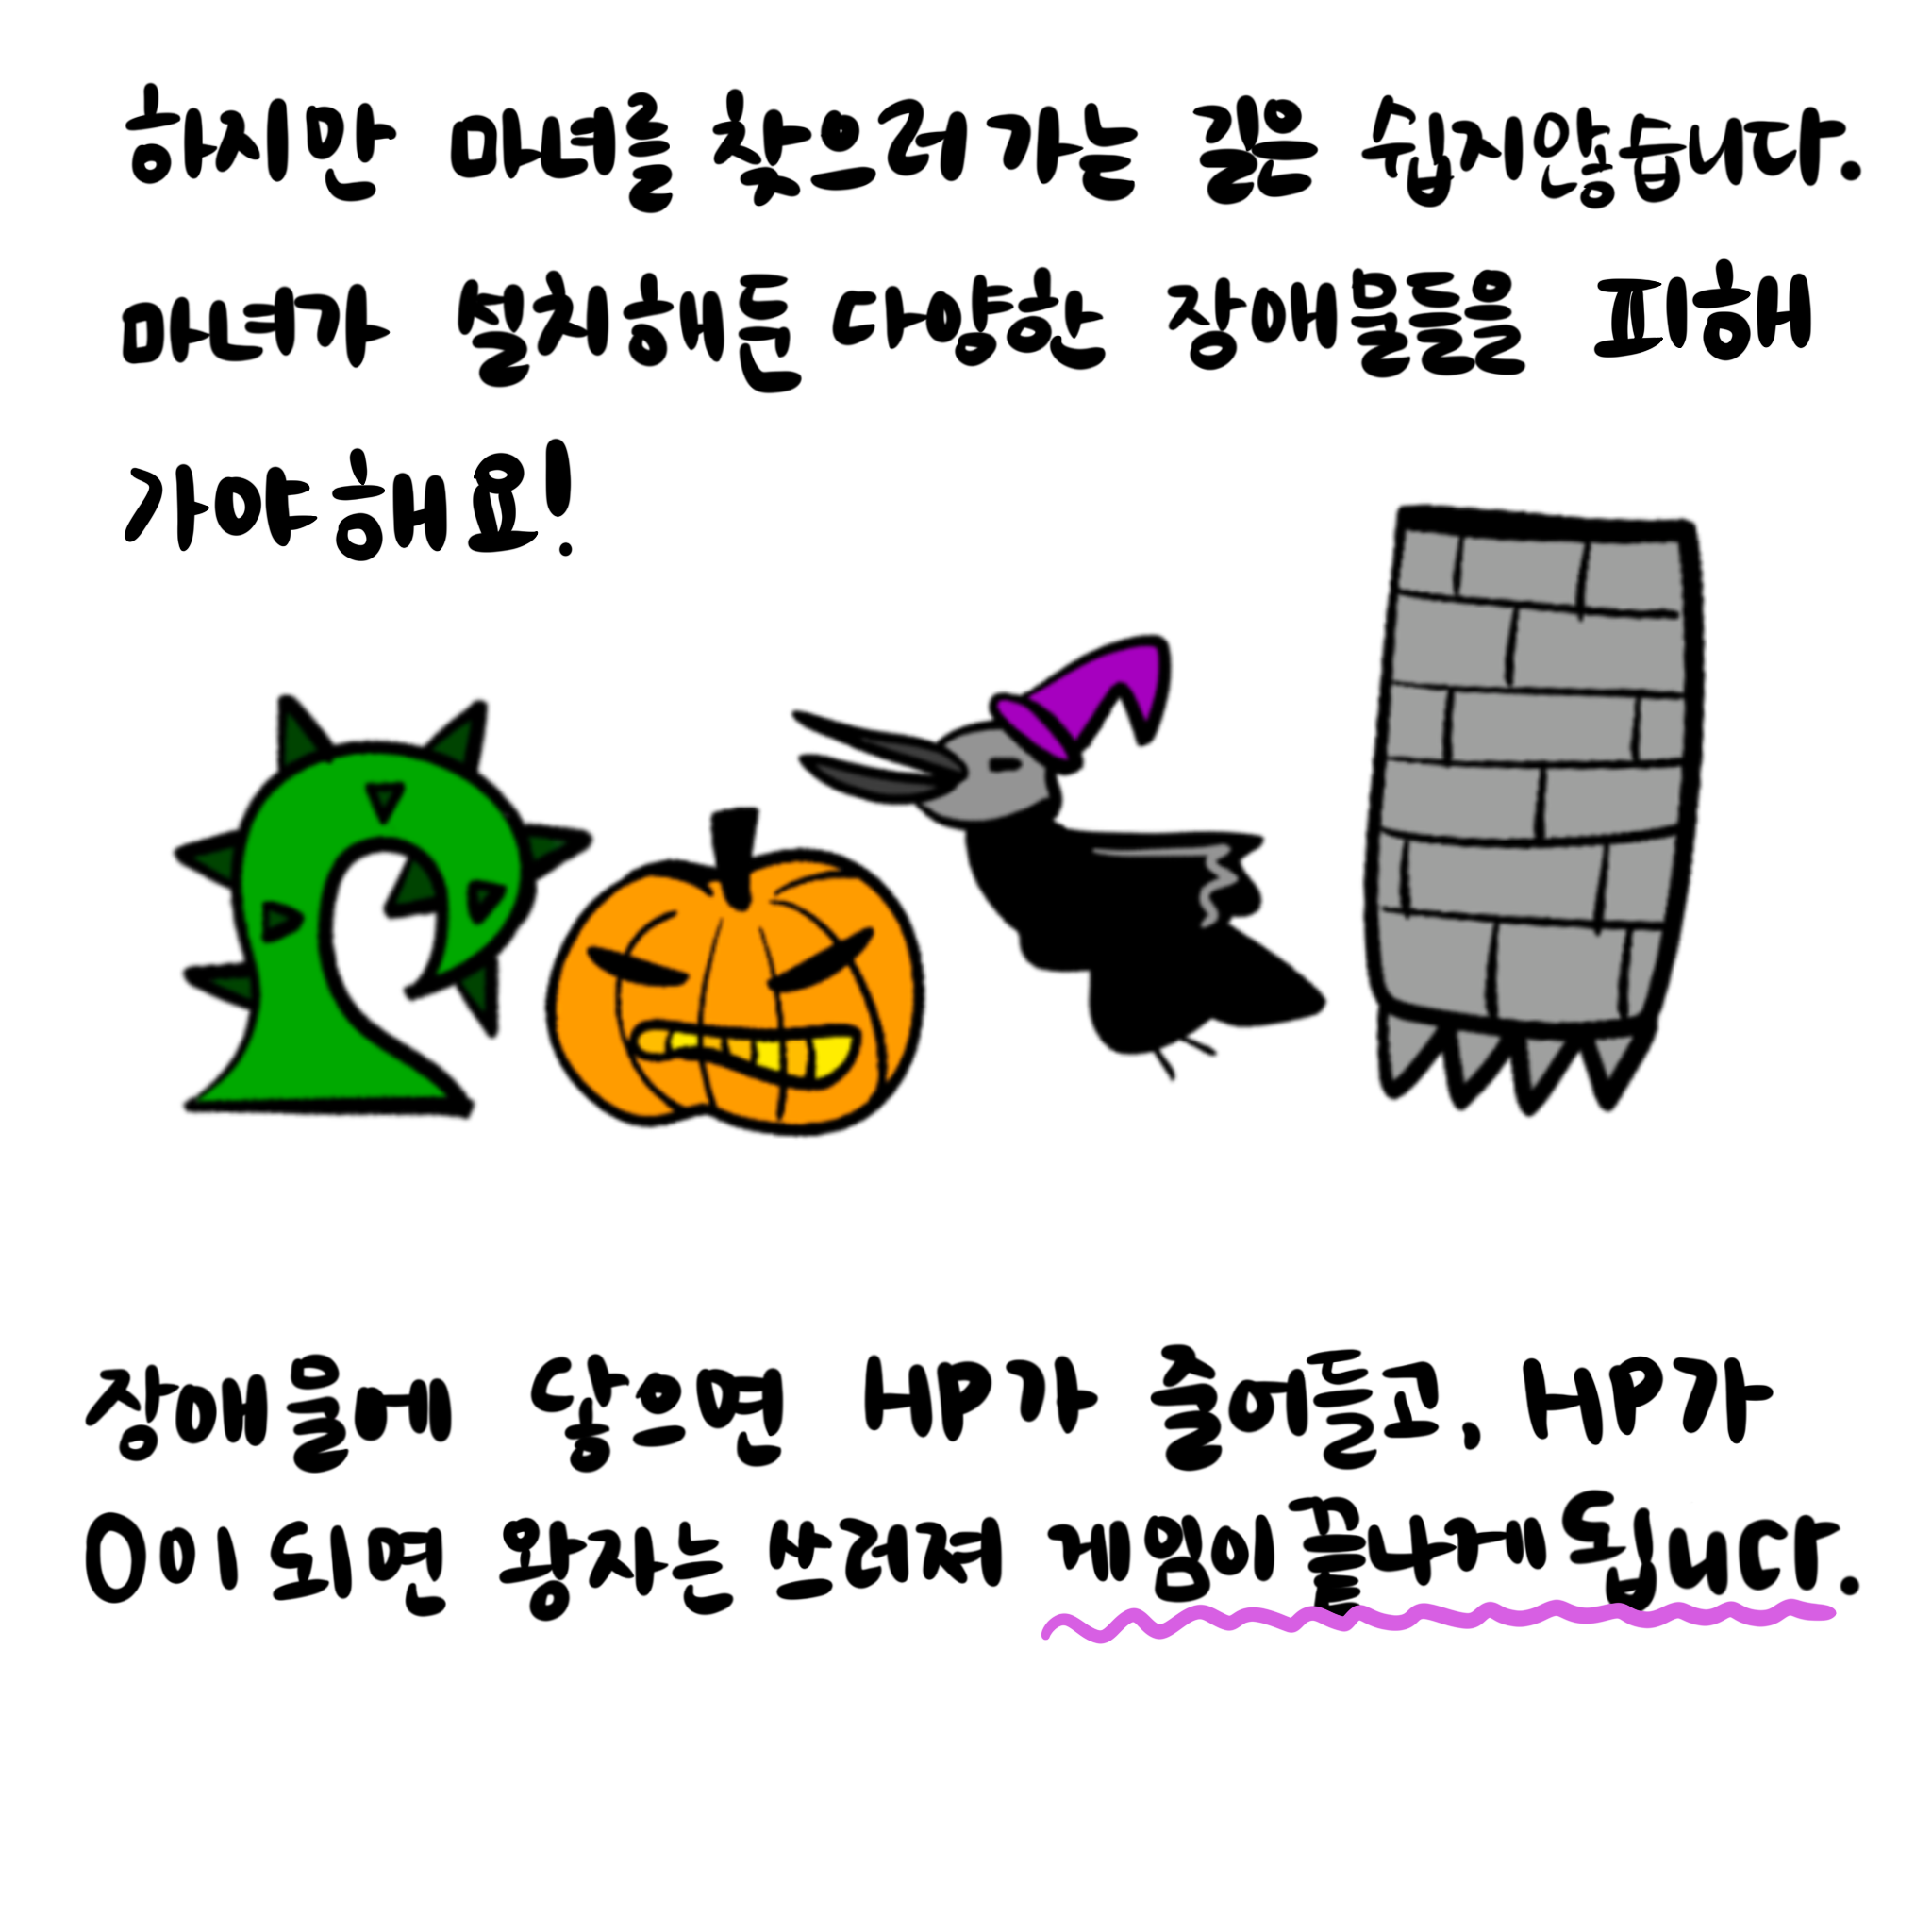 하지만 마녀를 찾으러가는 길은 쉽지않습니다.
마녀가 설치해둔 다양한 장애물들을 피해
가야해요!
장애물에 닿으면 HP가 줄어들고, HP가
0이 되면 왕자는 쓰러져 게임이끝나게됩니다.